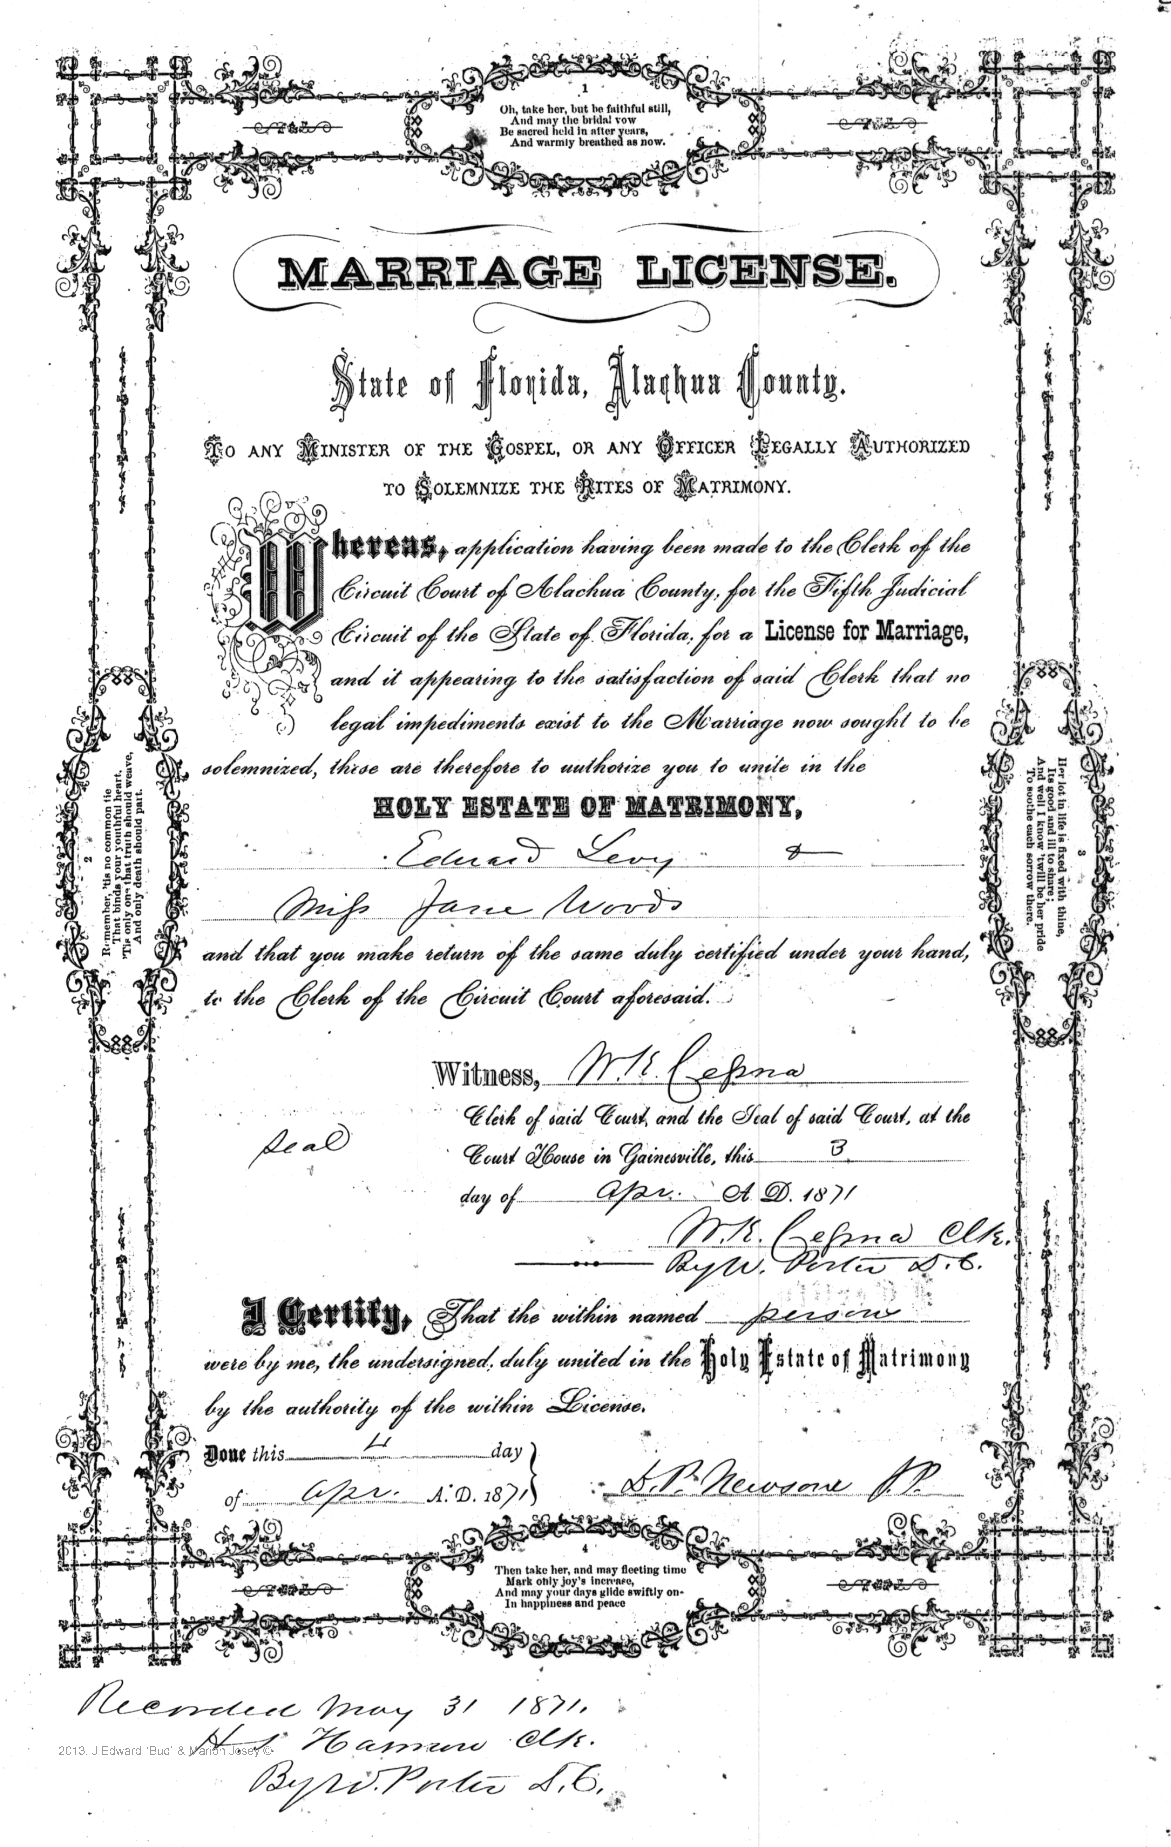 1
Oh, take her, but be faithful still,
And may the bridal vow
Be sacred held in after years,
And warmly breathed as now.
MARRIAGE LICENSE.
State of Florida, Alachua County.
TO ANY MINISTER OF THE GOSPEL, OR ANY OFFICER LEGALLY AUTHORIZED
TO SOLEMNIZE THE RITES OF MATRIMONY.
Whereas, application having been made to the Clerk of the
Circuit Court of Alachua County, for the Fifth Judicial
Circuit of the State of Florida, for a License for Marriage,
and it appearing to the satisfaction of said Clerk that no
legal impediments exist to the Marriage now sought to be
solemnized, these are therefore to authorize you to unite in the
HOLY ESTATE OF MATRIMONY,
Edward Levy &
Miss Jane Woods
and that you make return of the same duly certified under your hand,
to the Clerk of the Circuit Court aforesaid.
Witness, W. K. Cessna
Clerk of said Court, and the Seal of said Court, at the
Seal
Court House in Gainesville, this 3
day of Apr. A. D. 1871
W. K. Cessna Clk.
By W. Porter D. C.
I Certify, That the within named persons
were by me, the undersigned, duly united in the Holy Estate of Matrimony
by the authority of the within License.
Done this 4 day
of Apr. A. D. 1871
D. P. Newsome J. P.
2
Remember, 'tis no common tie
That binds your youthful heart,
'Tis only one that truth should weave,
And only death should part.
3
Her lot in life is fixed with thine,
Its good and ill to share;
And well I know 'twill be her pride
To soothe each sorrow there.
4
Then take her, and may fleeting time
Mark only joy's increase,
And may your days glide swiftly on-
In happiness and peace
Recorded May 31 1871.
Clk.
By W. Porter D. C.
2013. J Edward 'Bud' & Marion Josey ©